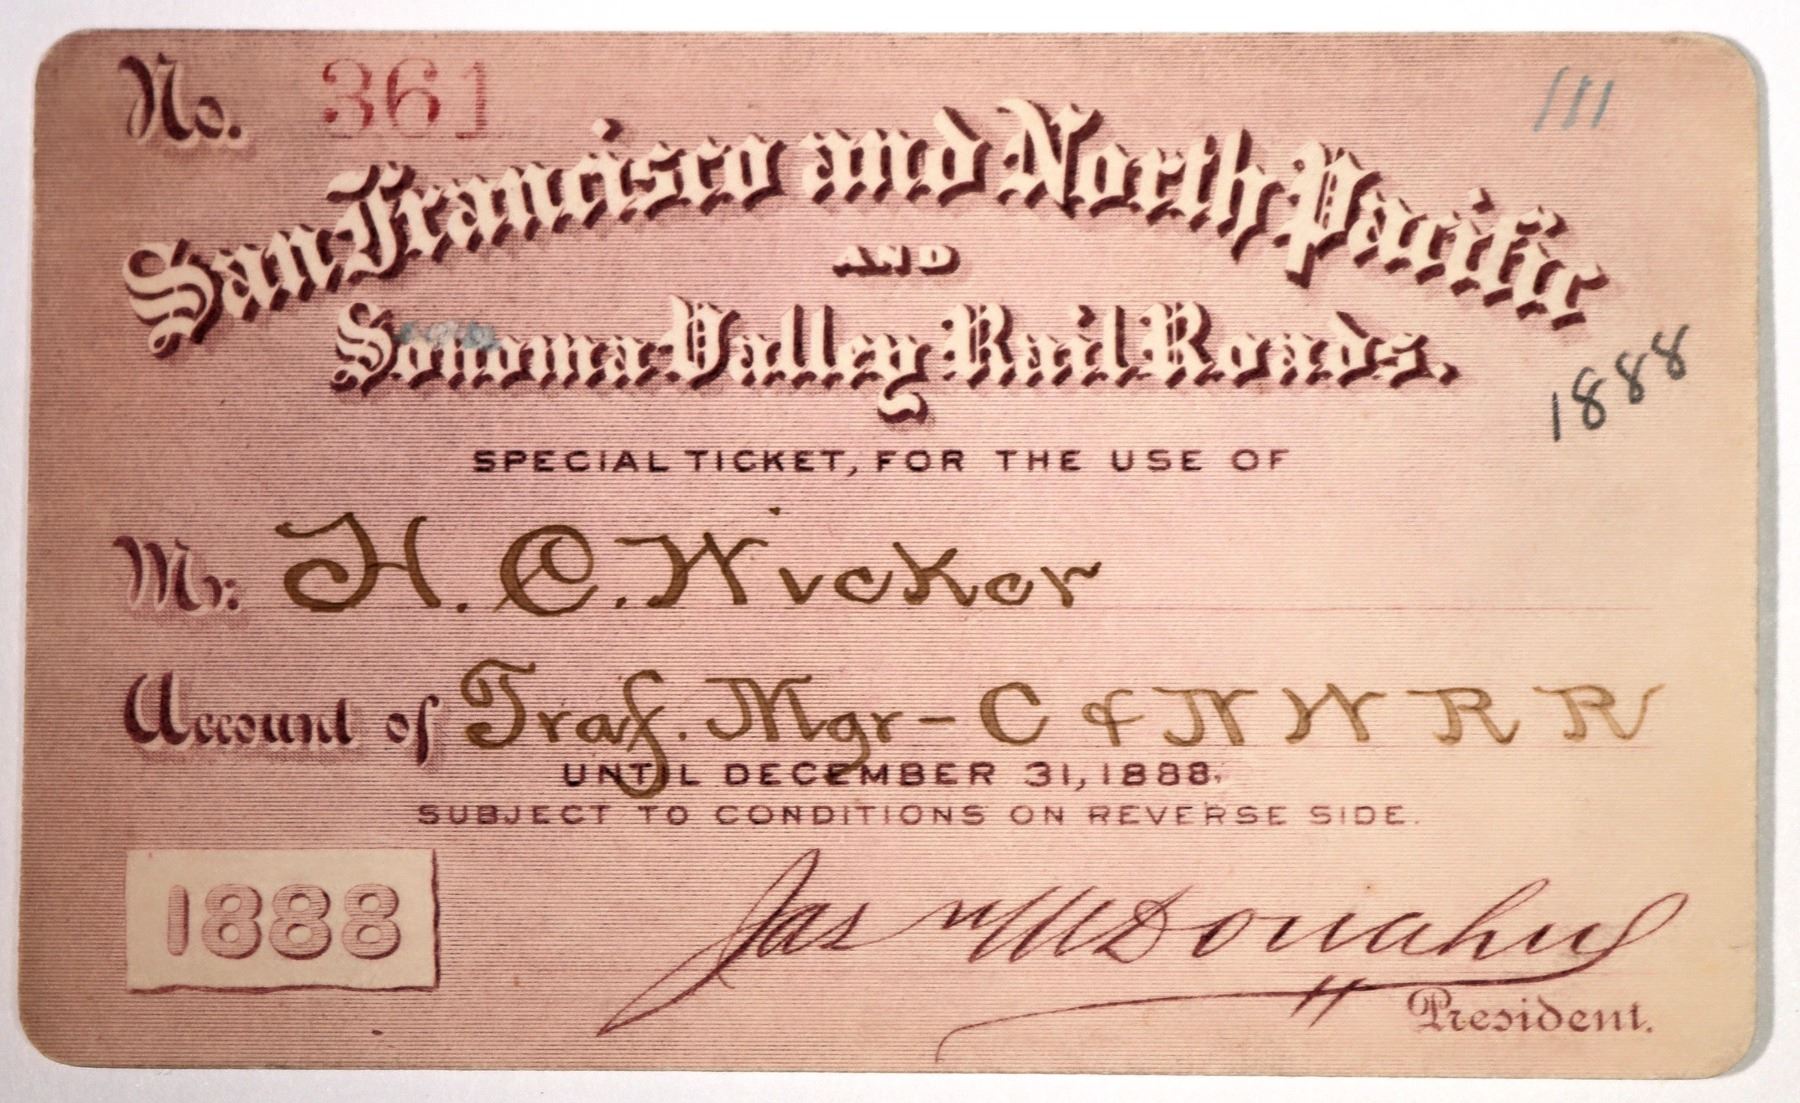 No. 361
111
San Francisco and North Pacific
AND
Sonoma Valley Rail Roads.
1888
SPECIAL TICKET, FOR THE USE OF
Mr. H. C. Wicker
Account of Traf. Mgr - C & N W R R
UNTIL DECEMBER 31, 1888.
SUBJECT TO CONDITIONS ON REVERSE SIDE.
1888
Jas McDonahue
President.